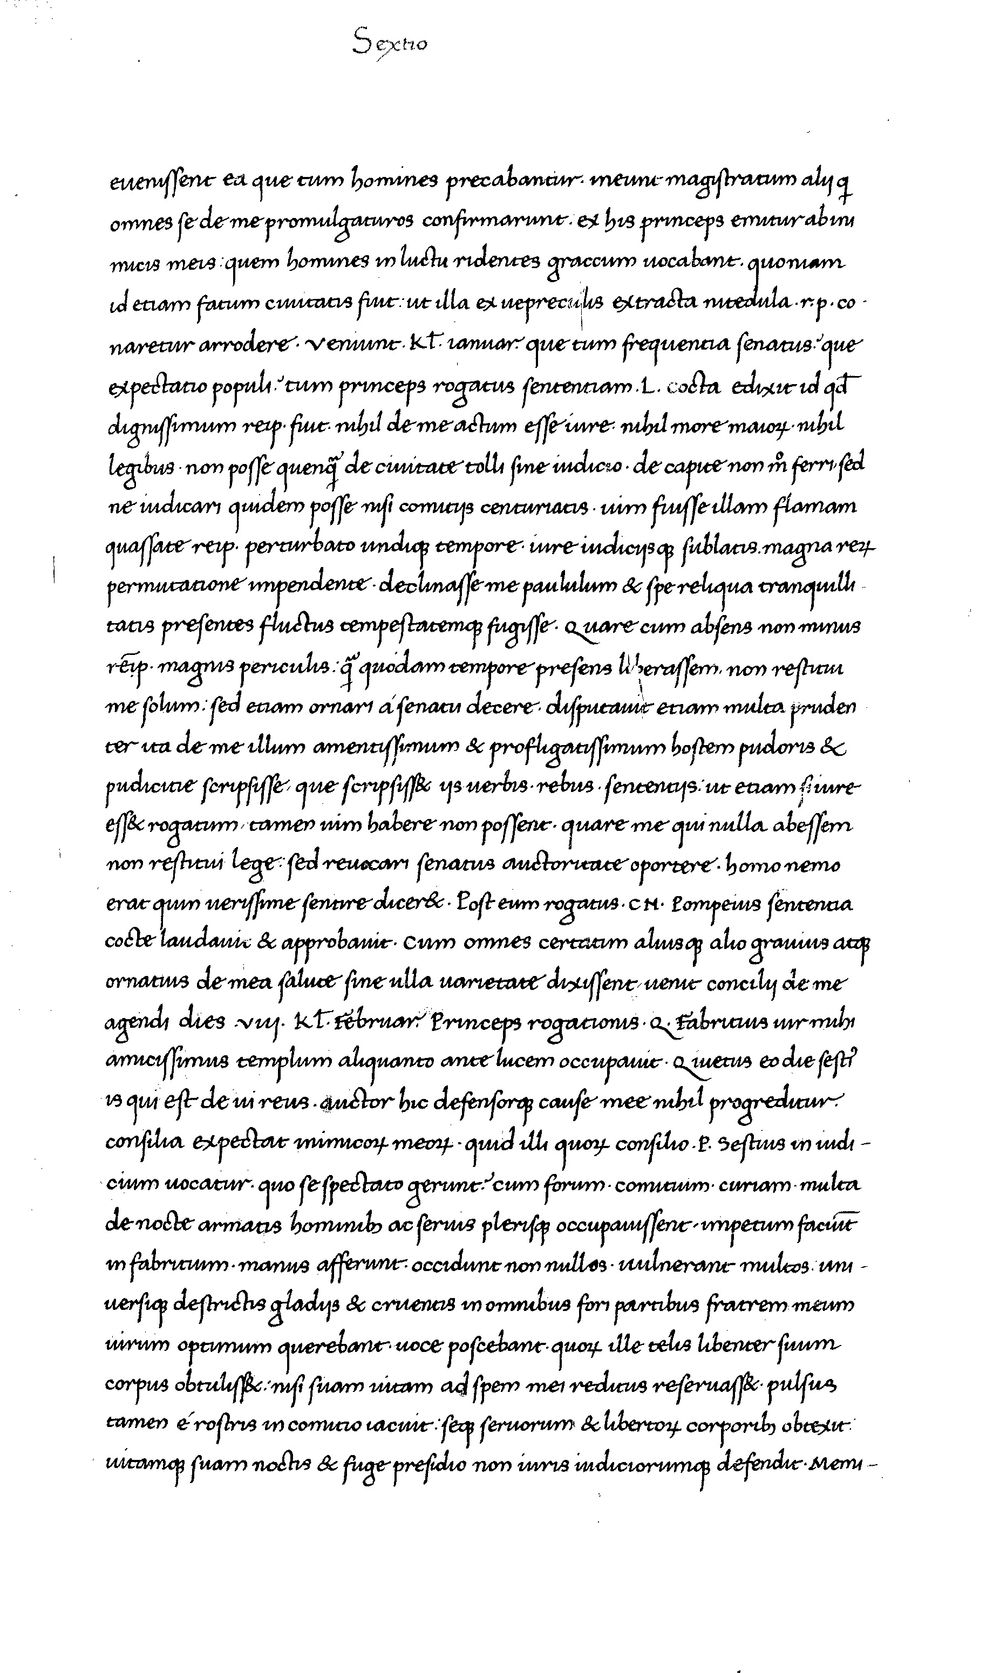 Sextio
evenissent ea que tum homines precabantur. ineunt magistratum alij q̄
omnes se de me promulgaturos confirmarunt. ex his princeps emitur ab ini
micis meis: quem homines in luctu ridentes graccum uocabant. quoniam
id etiam fatum ciuitatis fuit: ut illa ex uepreculis extracta nitedula .r.p. co-
naretur arrodere. Veniunt. Kl̄. ianuar. que tum frequentia senatus: que
expectatio populi: tum princeps rogatus sententiam .L. cocta edixit id qđ
dignissimum reip. fuit. nihil de me actum esse iure. nihil more maioꝝ. nihil
legibus. non posse quenq̄ de ciuitate tolli sine iudicio. de capite non m̊ ferri, sed
ne iudicari quidem posse nisi comitijs centuriatis. uim fuisse illam flamam
quassate reip. perturbato undiqꝫ tempore. iure iudicijsqꝫ sublatis. magna reꝝ
permutatione impendente. declinasse me paululum & spe reliqua tranquilli-
tatis presentes fluctus tempestatemqꝫ fugisse. Quare cum absens non minus
rēip. magnis periculis: q̄ quodam tempore presens liberassem. non restitui
me solum: sed etiam ornari á senatu decere. disputauit etiam multa pruden
ter ita de me illum amentissimum & profligatissimum hostem pudoris &
pudicitie scripsisse, que scripsiss& ijs uerbis. rebus. sententijs: ut etiam si iure
ess& rogatum, tamen uim habere non possent. quare me qui nulla abessem
non restitui lege: sed reuocari senatus auctoritate oportere. homo nemo
erat quin uerissime sentire dicer&. Post eum rogatus. CN. Pompeius sententia
cocte laudauit & approbauit. Cum omnes certatim aliusqꝫ alio grauius atqꝫ
ornatius de mea salute sine ulla uarietate dixissent, uenit concilij de me
agendi dies .viij. Kl̄. februar. Princeps rogationis. Q. Fabritius uir mihi
amicissimus templum aliquanto ante lucem occupauit. Quietus eo die sesti9
is qui est de ui reus. auctor hic defensorqꝫ cause mee nihil progreditur.
consilia expectat inimicoꝝ meoꝝ. quid illi quoꝝ consilio .P. Sestius in iudi-
cium uocatur. quo se spectato gerunt: cum forum. comitium. curiam. multa
de nocte armatis hominibꝫ ac seruis plerisqꝫ occupauissent, impetum faciūt
in fabritium. manus afferunt. occidunt non nullos. uulnerant multos: uni-
uersiqꝫ destrictis gladijs & cruentis in omnibus fori partibus fratrem meum
uirum optimum querebant. uoce poscebant. quoꝝ ille telis libenter suum
corpus obtuliss&: nisi suam uitam ad spem mei reditus reseruass&. pulsus
tamen é rostris in comitio iacuit: seqꝫ seruorum & libertoꝝ corporibꝫ obtexit:
uitamqꝫ suam noctis & fuge presidio non iuris iudiciorumqꝫ defendit. Memi-